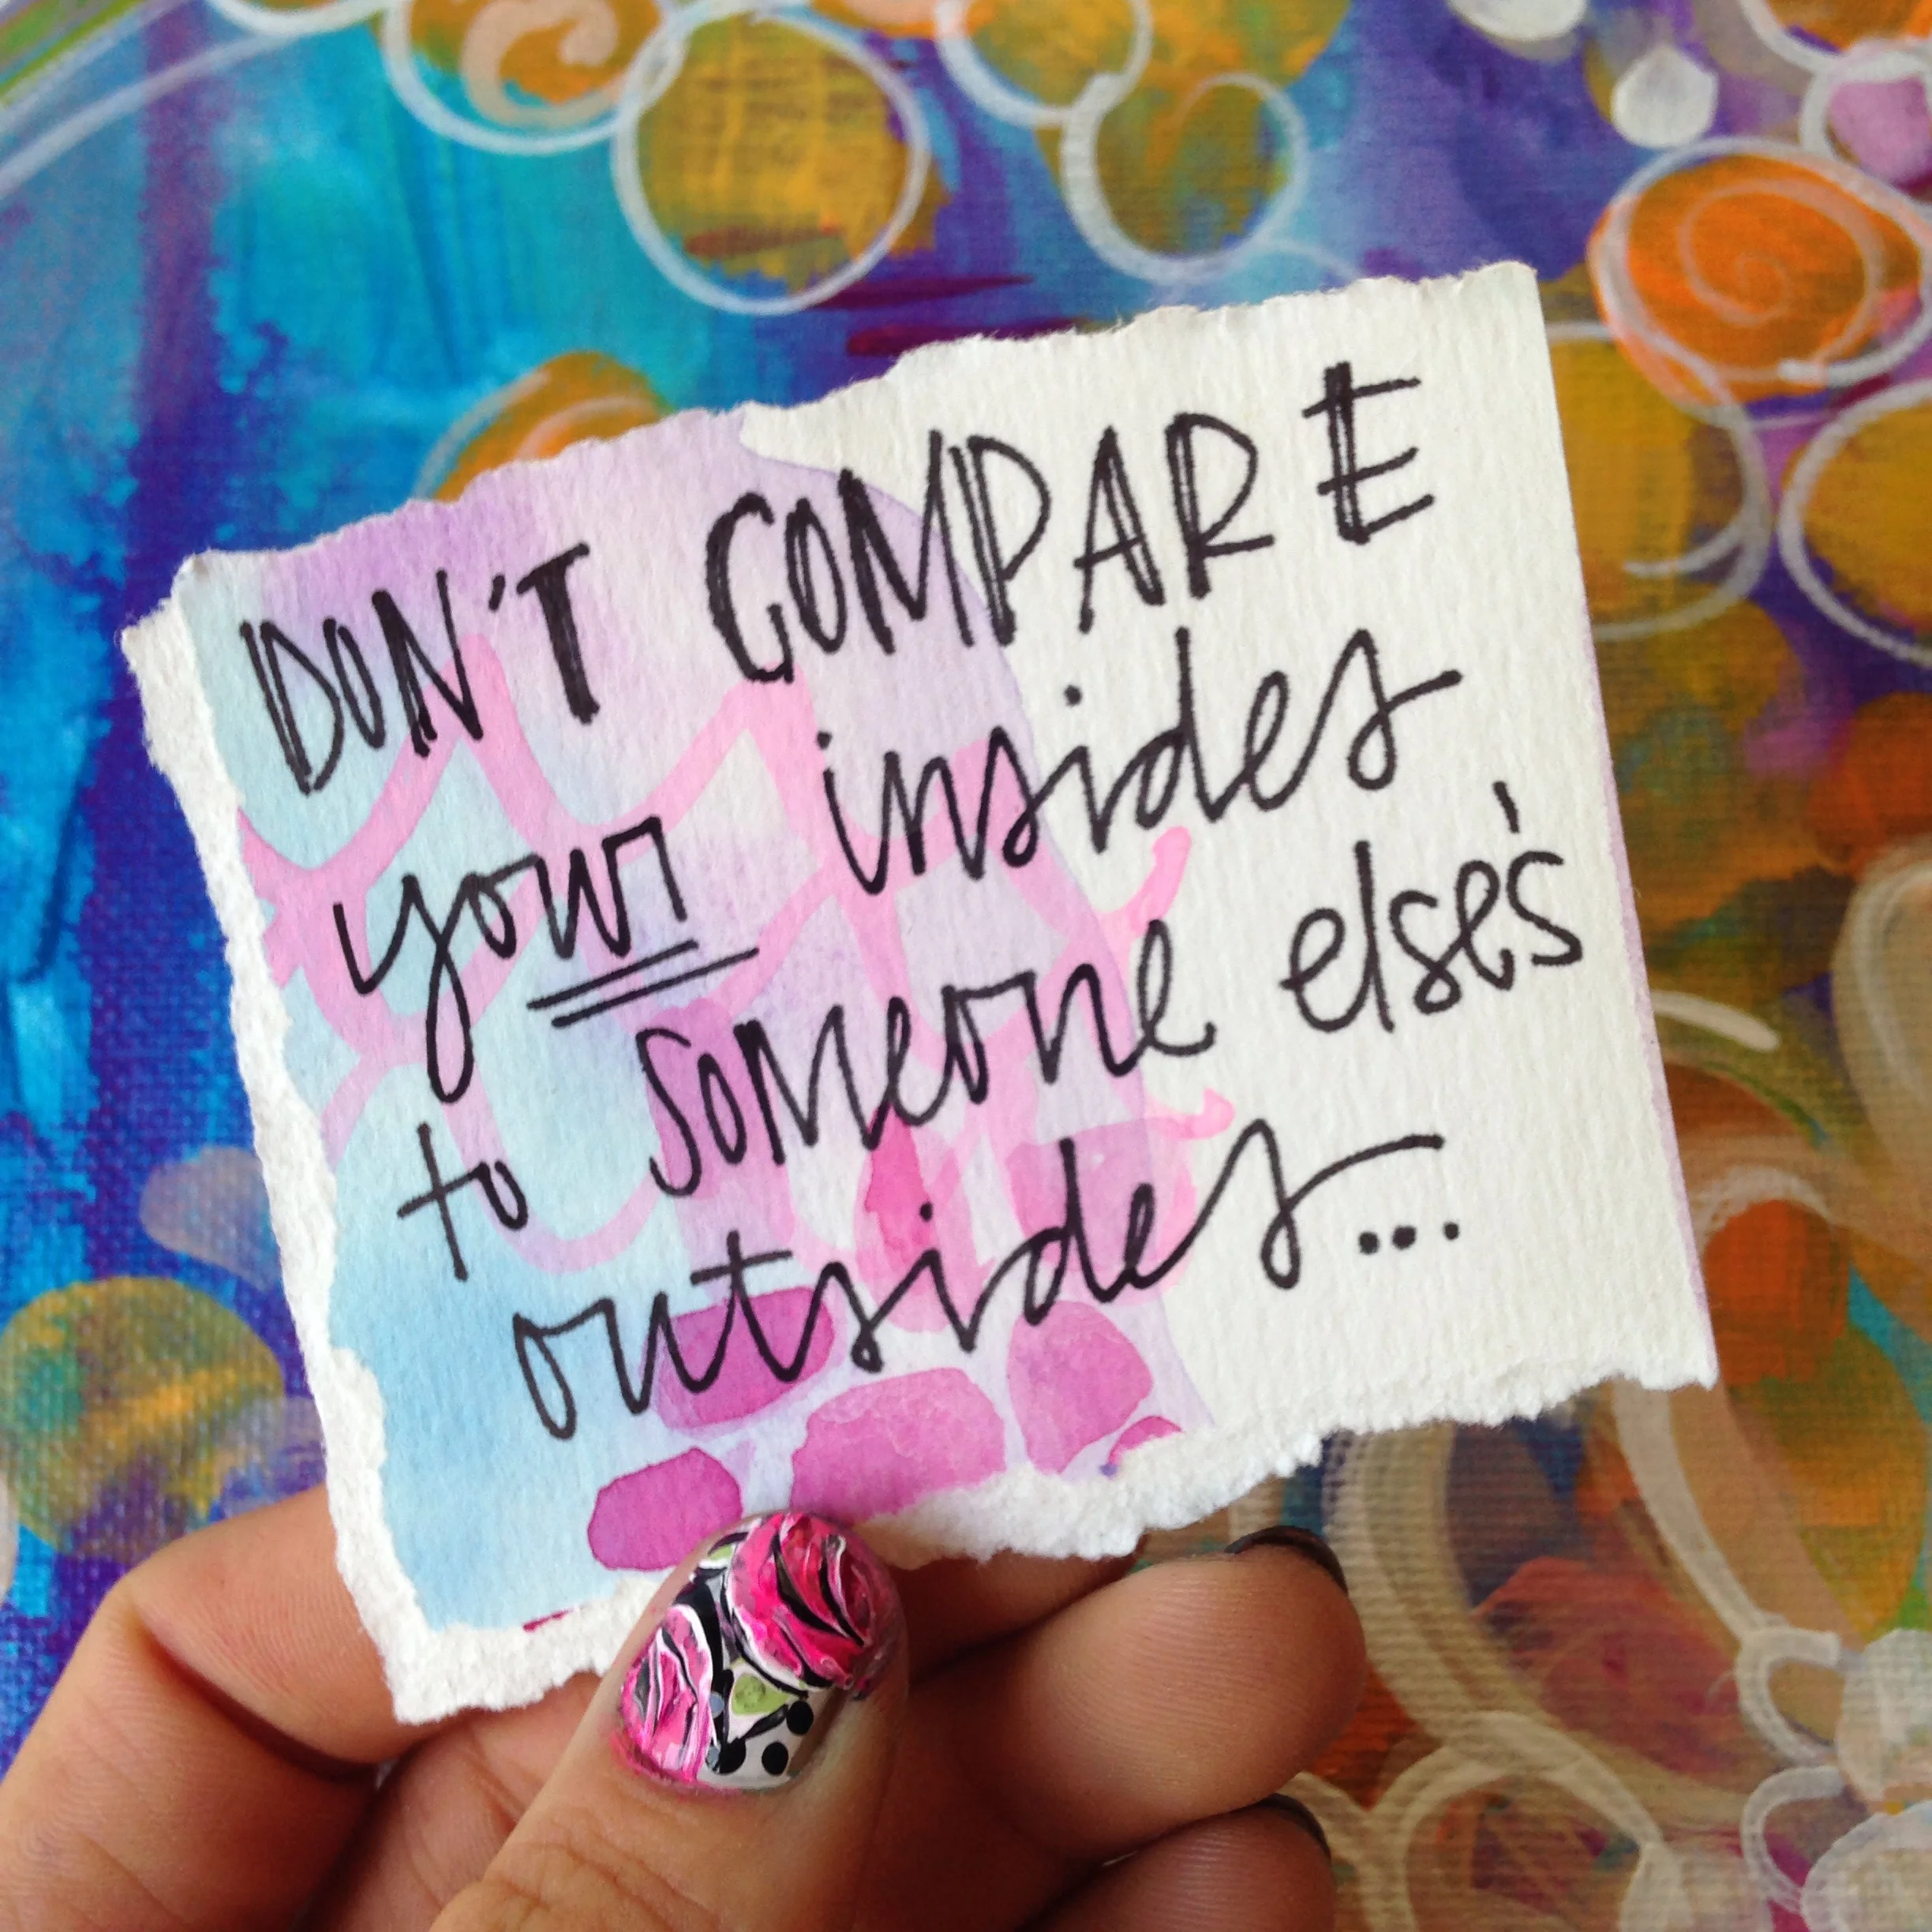 DON'T COMPARE
your insides
to someone else's
outsides...